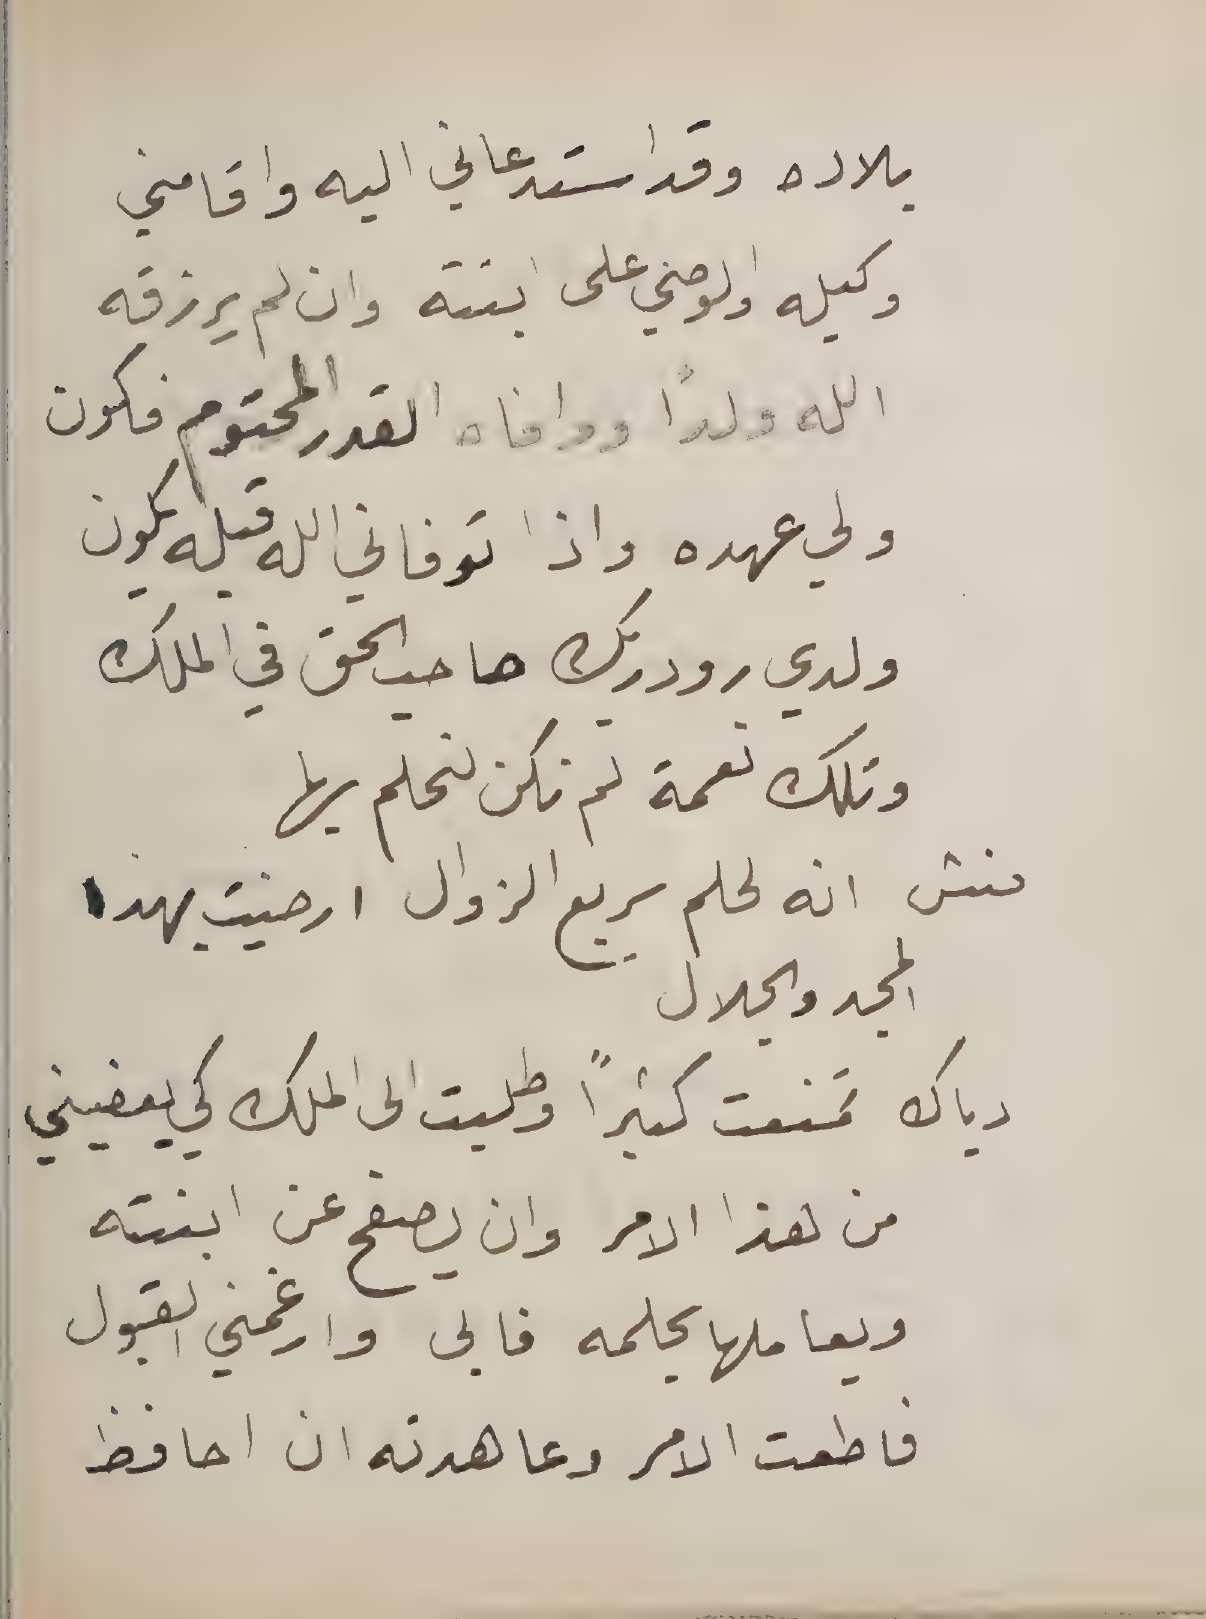 بلاده وقد استدعاني اليه واقامني
وكيله والوصي على ابنته وان لم يرزقه
الله ولدًا ووافاه القدر المحتوم فاكون
ولي عهده واذا توفاني الله قبله يكون
ولدي رودريك صاحب الحق في الملك
وتلك نعمة لم نكن لنحلم بها
منش انه لحلم سريع الزوال ارضيت بهذا
المجد والجلال
دياك تمنعت كثيرًا وطلبت الى الملك كي يعفيني
من هذا الامر وان يصفح عن ابنته
ويعاملها بحلمه فابى وارغمني القبول
فاطعت الامر وعاهدته ان احافظ